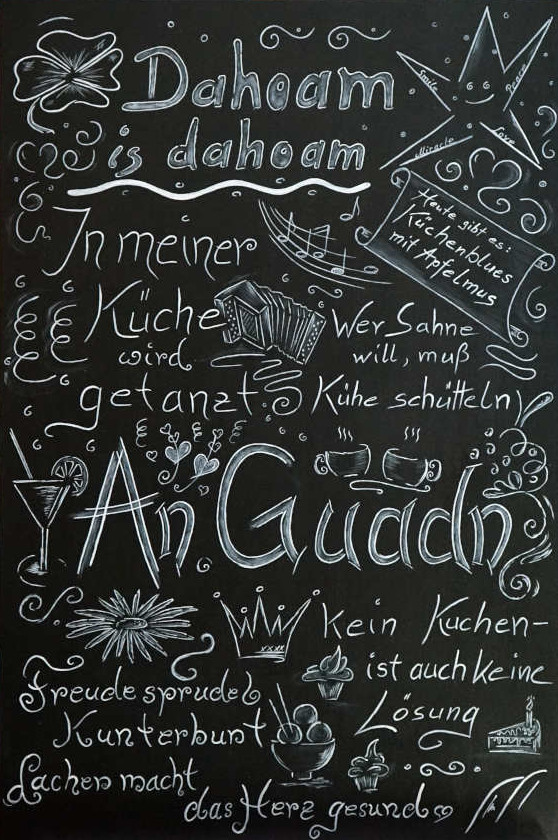 Dahoam
is dahoam
Smile
Peace
Miracle
Love
Heute gibt es:
Küchenblues
mit Apfelmus
In meiner
Küche
wird
getanzt
Wer Sahne
will, muß
Kühe schütteln
An Guadn
Kein Kuchen-
ist auch keine
Lösung
Freude sprudel
Kunterbunt
Lachen macht
das Herz gesund